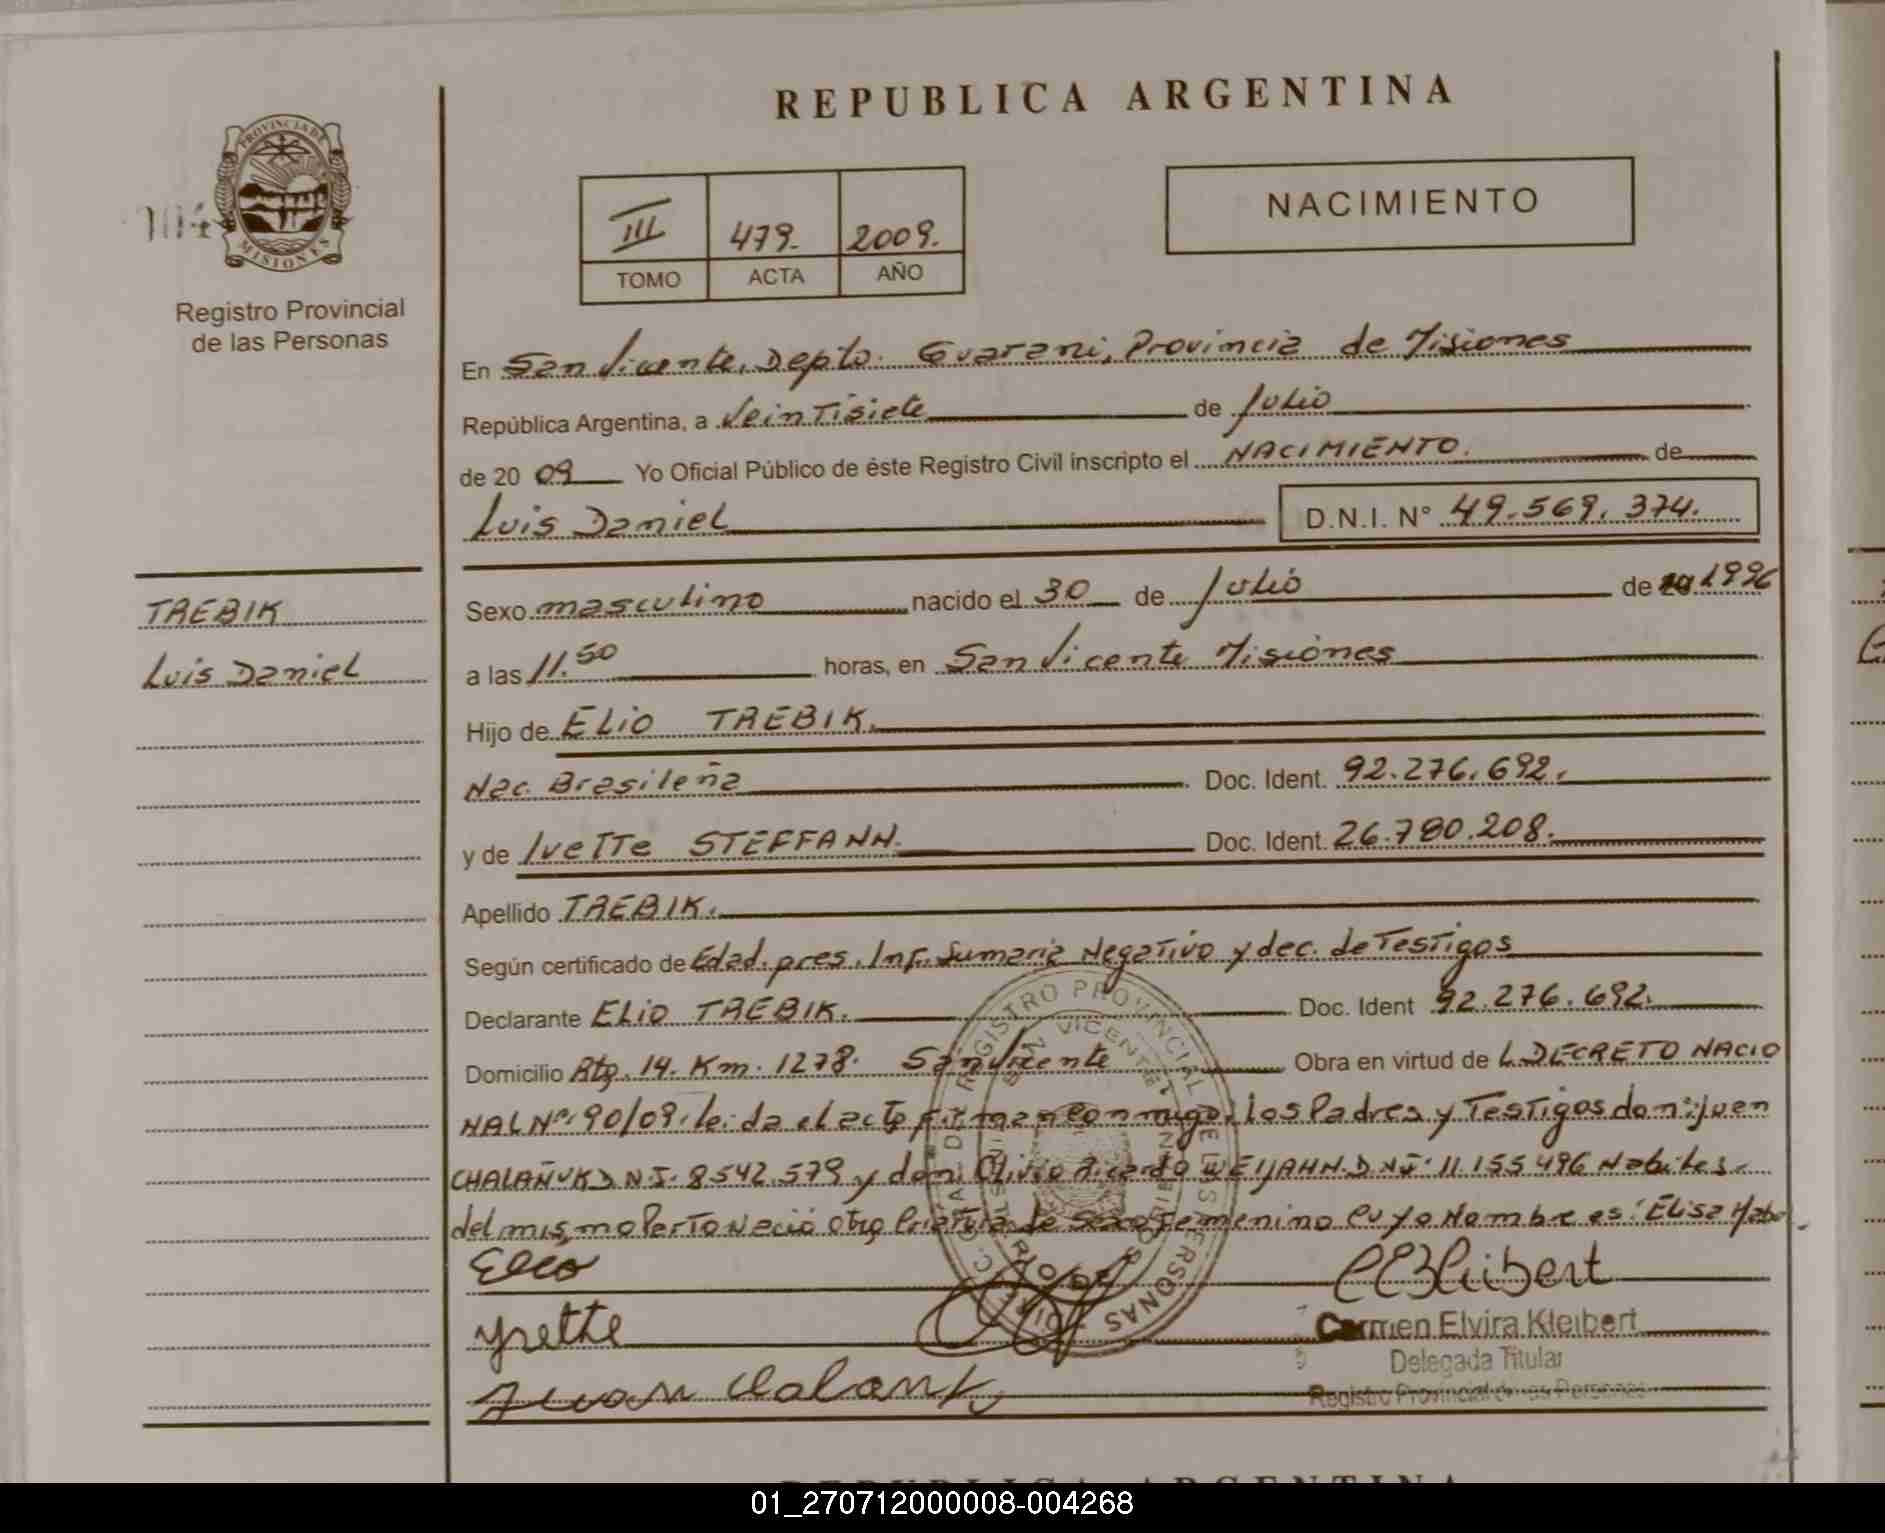 REPUBLICA ARGENTINA
PROVINCIA DE
MISIONES
Registro Provincial
de las Personas
III 479. 2009.
TOMO ACTA AÑO
NACIMIENTO
En San Vicente, Depto. Guarani, Provincia de Misiones
República Argentina, a Veintisiete de Julio
de 20 09 Yo Oficial Público de éste Registro Civil inscripto el NACIMIENTO. de
Luis Daniel D.N.I. N° 49.569.374.
TREBIK
Luis Daniel
Sexo masculino nacido el 30 de Julio de 1996
a las 11.50 horas, en San Vicente Misiones
Hijo de ELio TREBIK.
Nac. Brasileña Doc. Ident. 92.276.692.
y de Ivette STEFFANN. Doc. Ident. 26.780.208.
Apellido TREBIK.
Según certificado de Edad. pres. Inf. Sumaria Negativo y dec. de Testigos
Declarante ELio TREBIK. Doc. Ident 92.276.692.
Domicilio Rta. 14. Km. 1278. San Vicente Obra en virtud de L DECRETO NACIO
NAL Nº: 90/09. leida el acta firman conmigo, los Padres y Testigos don: Juan
CHALAÑUK D.N.I. 8542.579 y don. Olivio Ricardo WEIJAHN. D.N.I. 11.155.496 Habiles.
del mismo Parto Nació otra Criatura de Sexo Femenino cuyo Nombre es: Elisa
REGISTRO PROVINCIAL DE LAS PERSONAS
SAN VICENTE
Elio
Yvette
Juan
CEKleibert
Carmen Elvira Kleibert
Delegada Titular
Registro Provincial de las Personas
REPUBLICA ARGENTINA
01_270712000008-004268